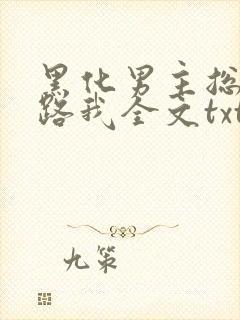 黑化男主总
路我全文txt
九策